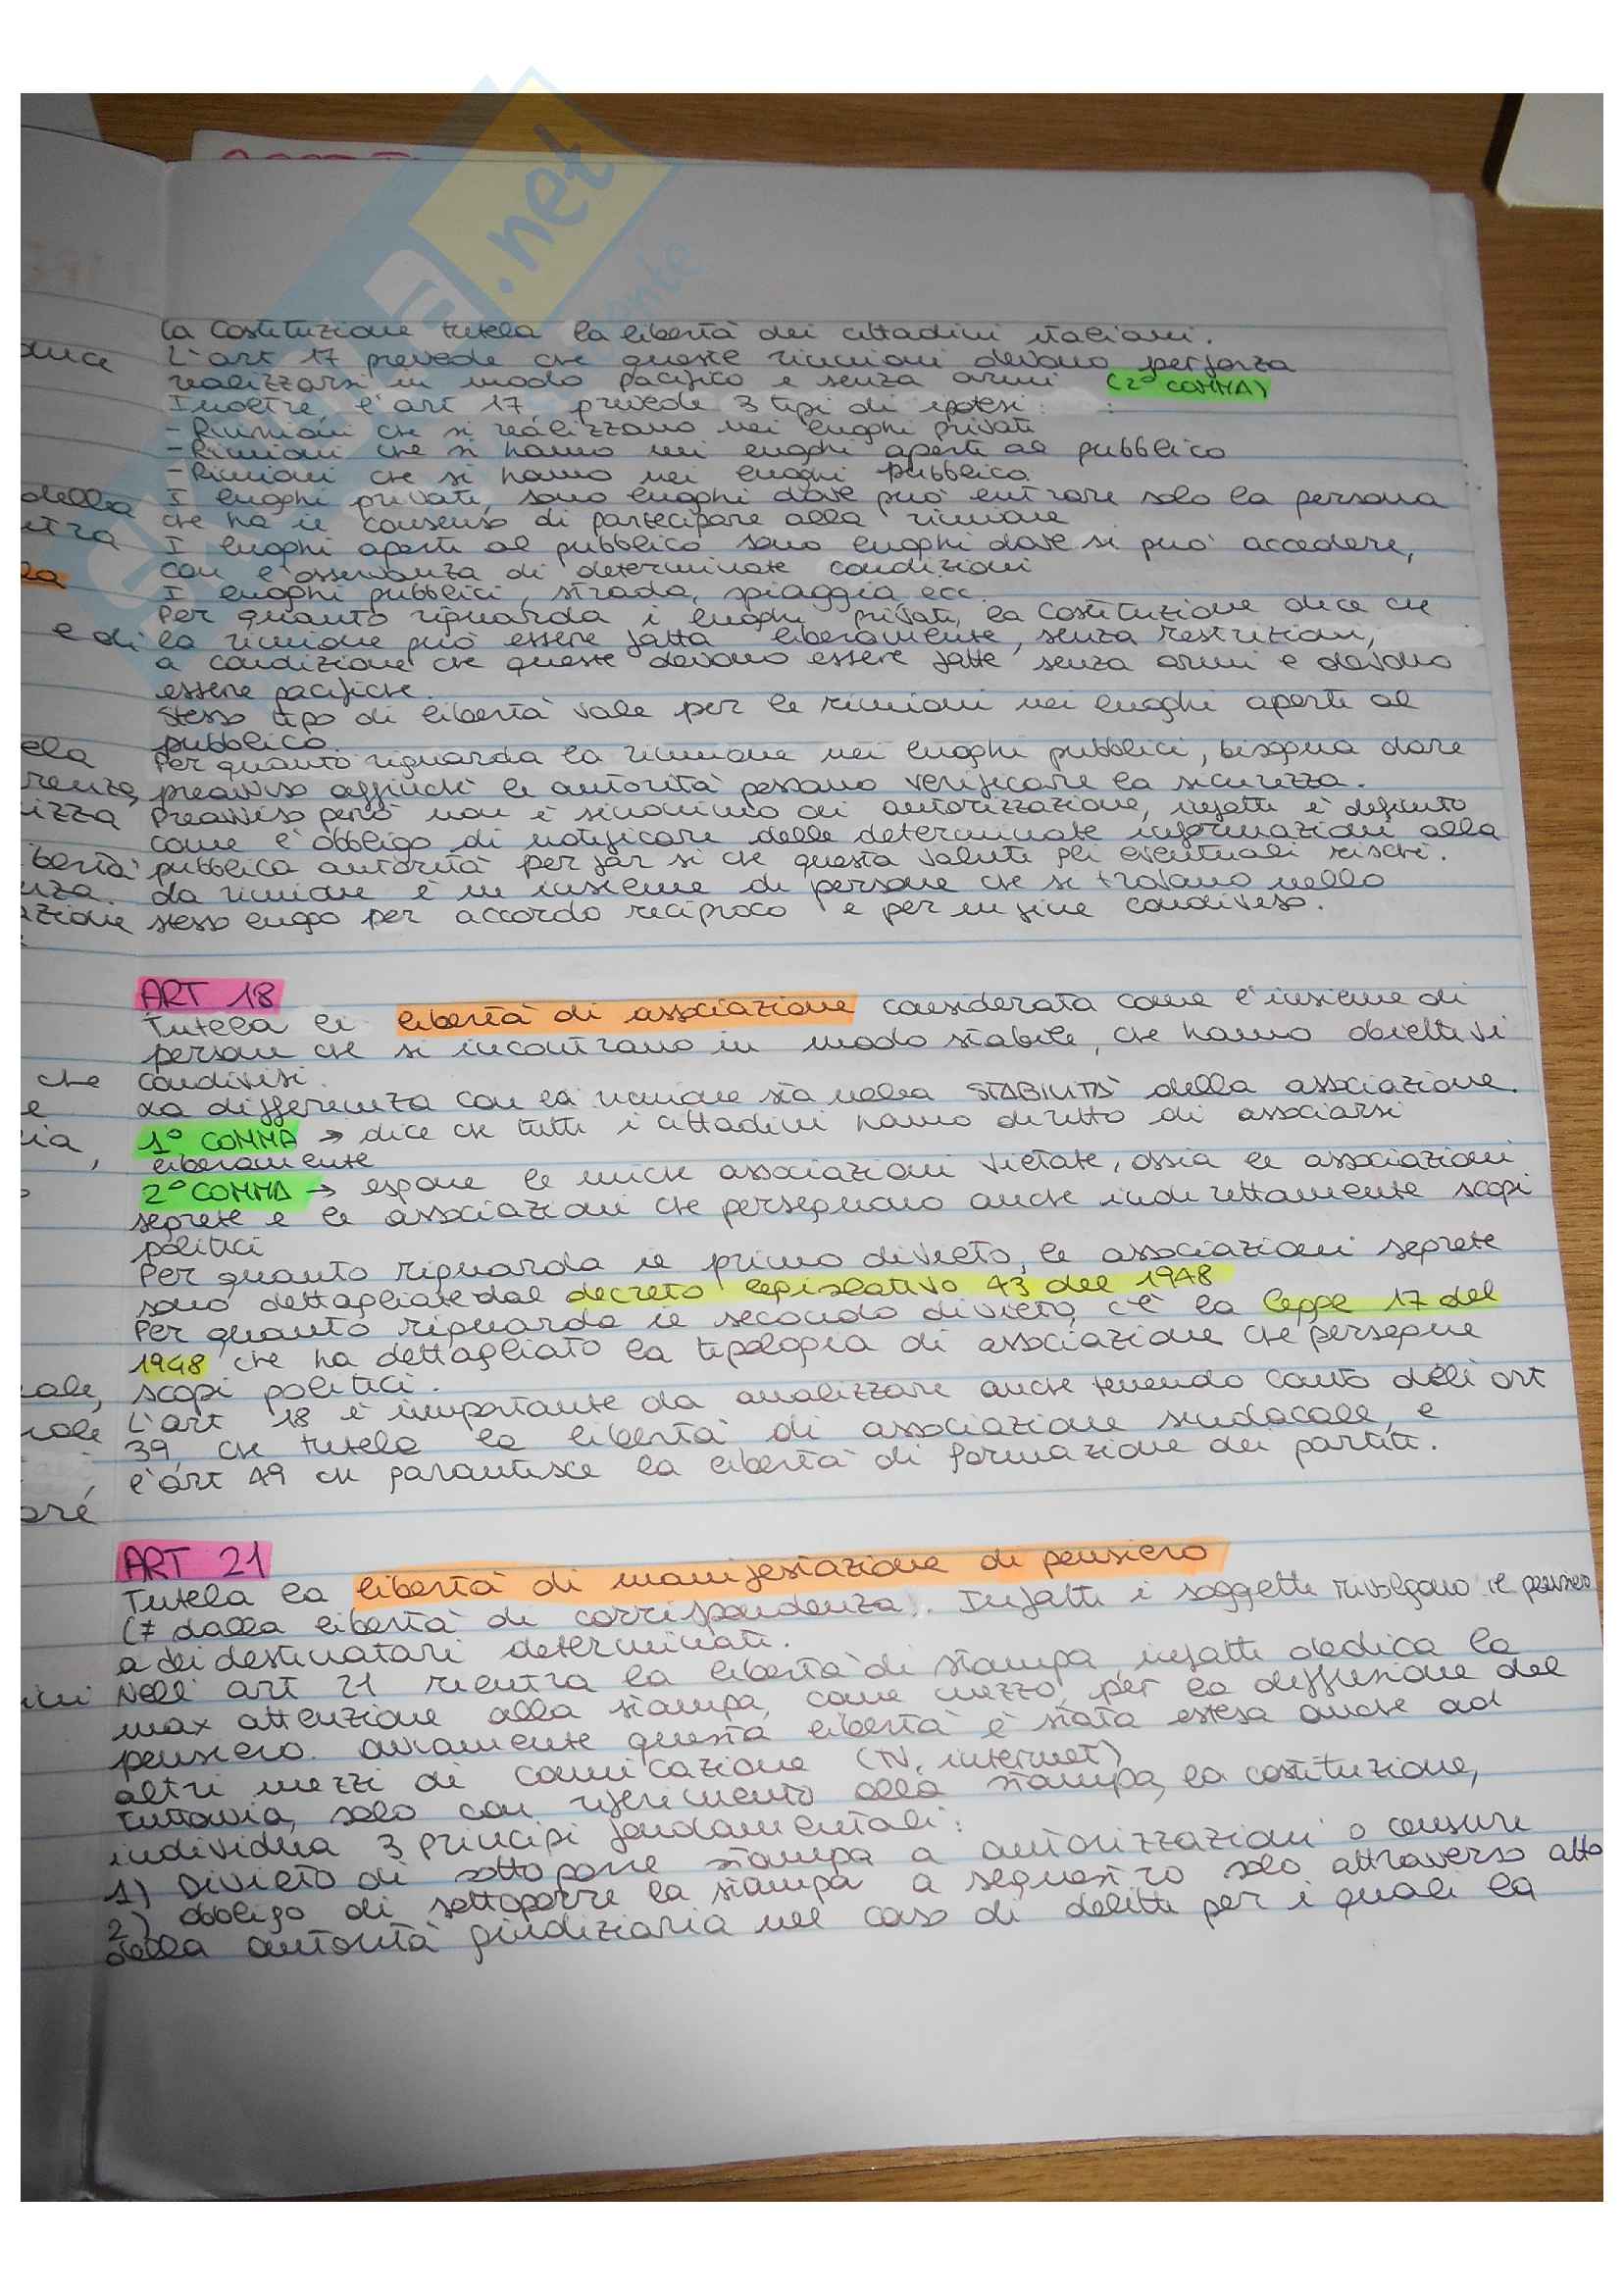 .net
la Costituzione tutela la libertà dei cittadini italiani.
L'art 17 prevede che queste riunioni devono per forza
realizzarsi in modo pacifico e senza armi (2° COMMA)
Inoltre, l'art 17, prevede 3 tipi di ipotesi:
- Riunioni che si realizzano nei luoghi privati
- Riunioni che si hanno nei luoghi aperti al pubblico
- Riunioni che si hanno nei luoghi pubblico
I luoghi privati, sono luoghi dove può entrare solo la persona
che ha il consenso di partecipare alla riunione
I luoghi aperti al pubblico sono luoghi dove si può accedere,
con l'osservanza di determinate condizioni
I luoghi pubblici, strada, spiaggia ecc.
Per quanto riguarda i luoghi privati, la Costituzione dice che
la riunione può essere fatta liberamente, senza restrizioni,
a condizione che queste devono essere fatte senza armi e devono
essere pacifiche.
Stesso tipo di libertà vale per le riunioni nei luoghi aperti al
pubblico.
Per quanto riguarda la riunione nei luoghi pubblici, bisogna dare
preavviso affinché le autorità possano verificare la sicurezza.
Preavviso però non è sinonimo di autorizzazione, infatti è definito
come l'obbligo di notificare delle determinate informazioni alla
pubblica autorità per far si che questa valuti gli eventuali rischi.
La riunione è un insieme di persone che si trovano nello
stesso luogo per accordo reciproco e per un fine condiviso.
ART 18
Tutela la libertà di associazione considerata come l'insieme di
persone che si incontrano in modo stabile, che hanno obiettivi
condivisi.
La differenza con la riunione sta nella STABILITÀ della associazione.
1° COMMA → dice che tutti i cittadini hanno diritto di associarsi
liberamente
2° COMMA → espone le uniche associazioni vietate, ossia le associazioni
segrete e le associazioni che perseguono anche indirettamente scopi
politici
Per quanto riguarda il primo divieto, le associazioni segrete
sono dettagliate dal decreto legislativo 43 del 1948
Per quanto riguarda il secondo divieto, c'è la legge 17 del
1948 che ha dettagliato la tipologia di associazione che persegue
scopi politici.
L'art 18 è importante da analizzare anche tenendo conto dell'art
39, che tutela la libertà di associazione sindacale, e
l'art 49 che garantisce la libertà di formazione dei partiti.
ART 21
Tutela la libertà di manifestazione di pensiero
(≠ dalla libertà di corrispondenza). Infatti i soggetti rivolgono il pensiero
a dei destinatari determinati.
Nell'art 21 rientra la libertà di stampa, infatti dedica la
max attenzione alla stampa, come mezzo per la diffusione del
pensiero. Ovviamente questa libertà è stata estesa anche ad
altri mezzi di comunicazione (TV, internet)
Tuttavia, solo con riferimento alla stampa, la costituzione,
individua 3 principi fondamentali:
1) Divieto di sottoporre stampa a autorizzazioni o censure
2) obbligo di sottoporre la stampa a sequestro solo attraverso atto
della autorità giudiziaria nel caso di delitti per i quali la